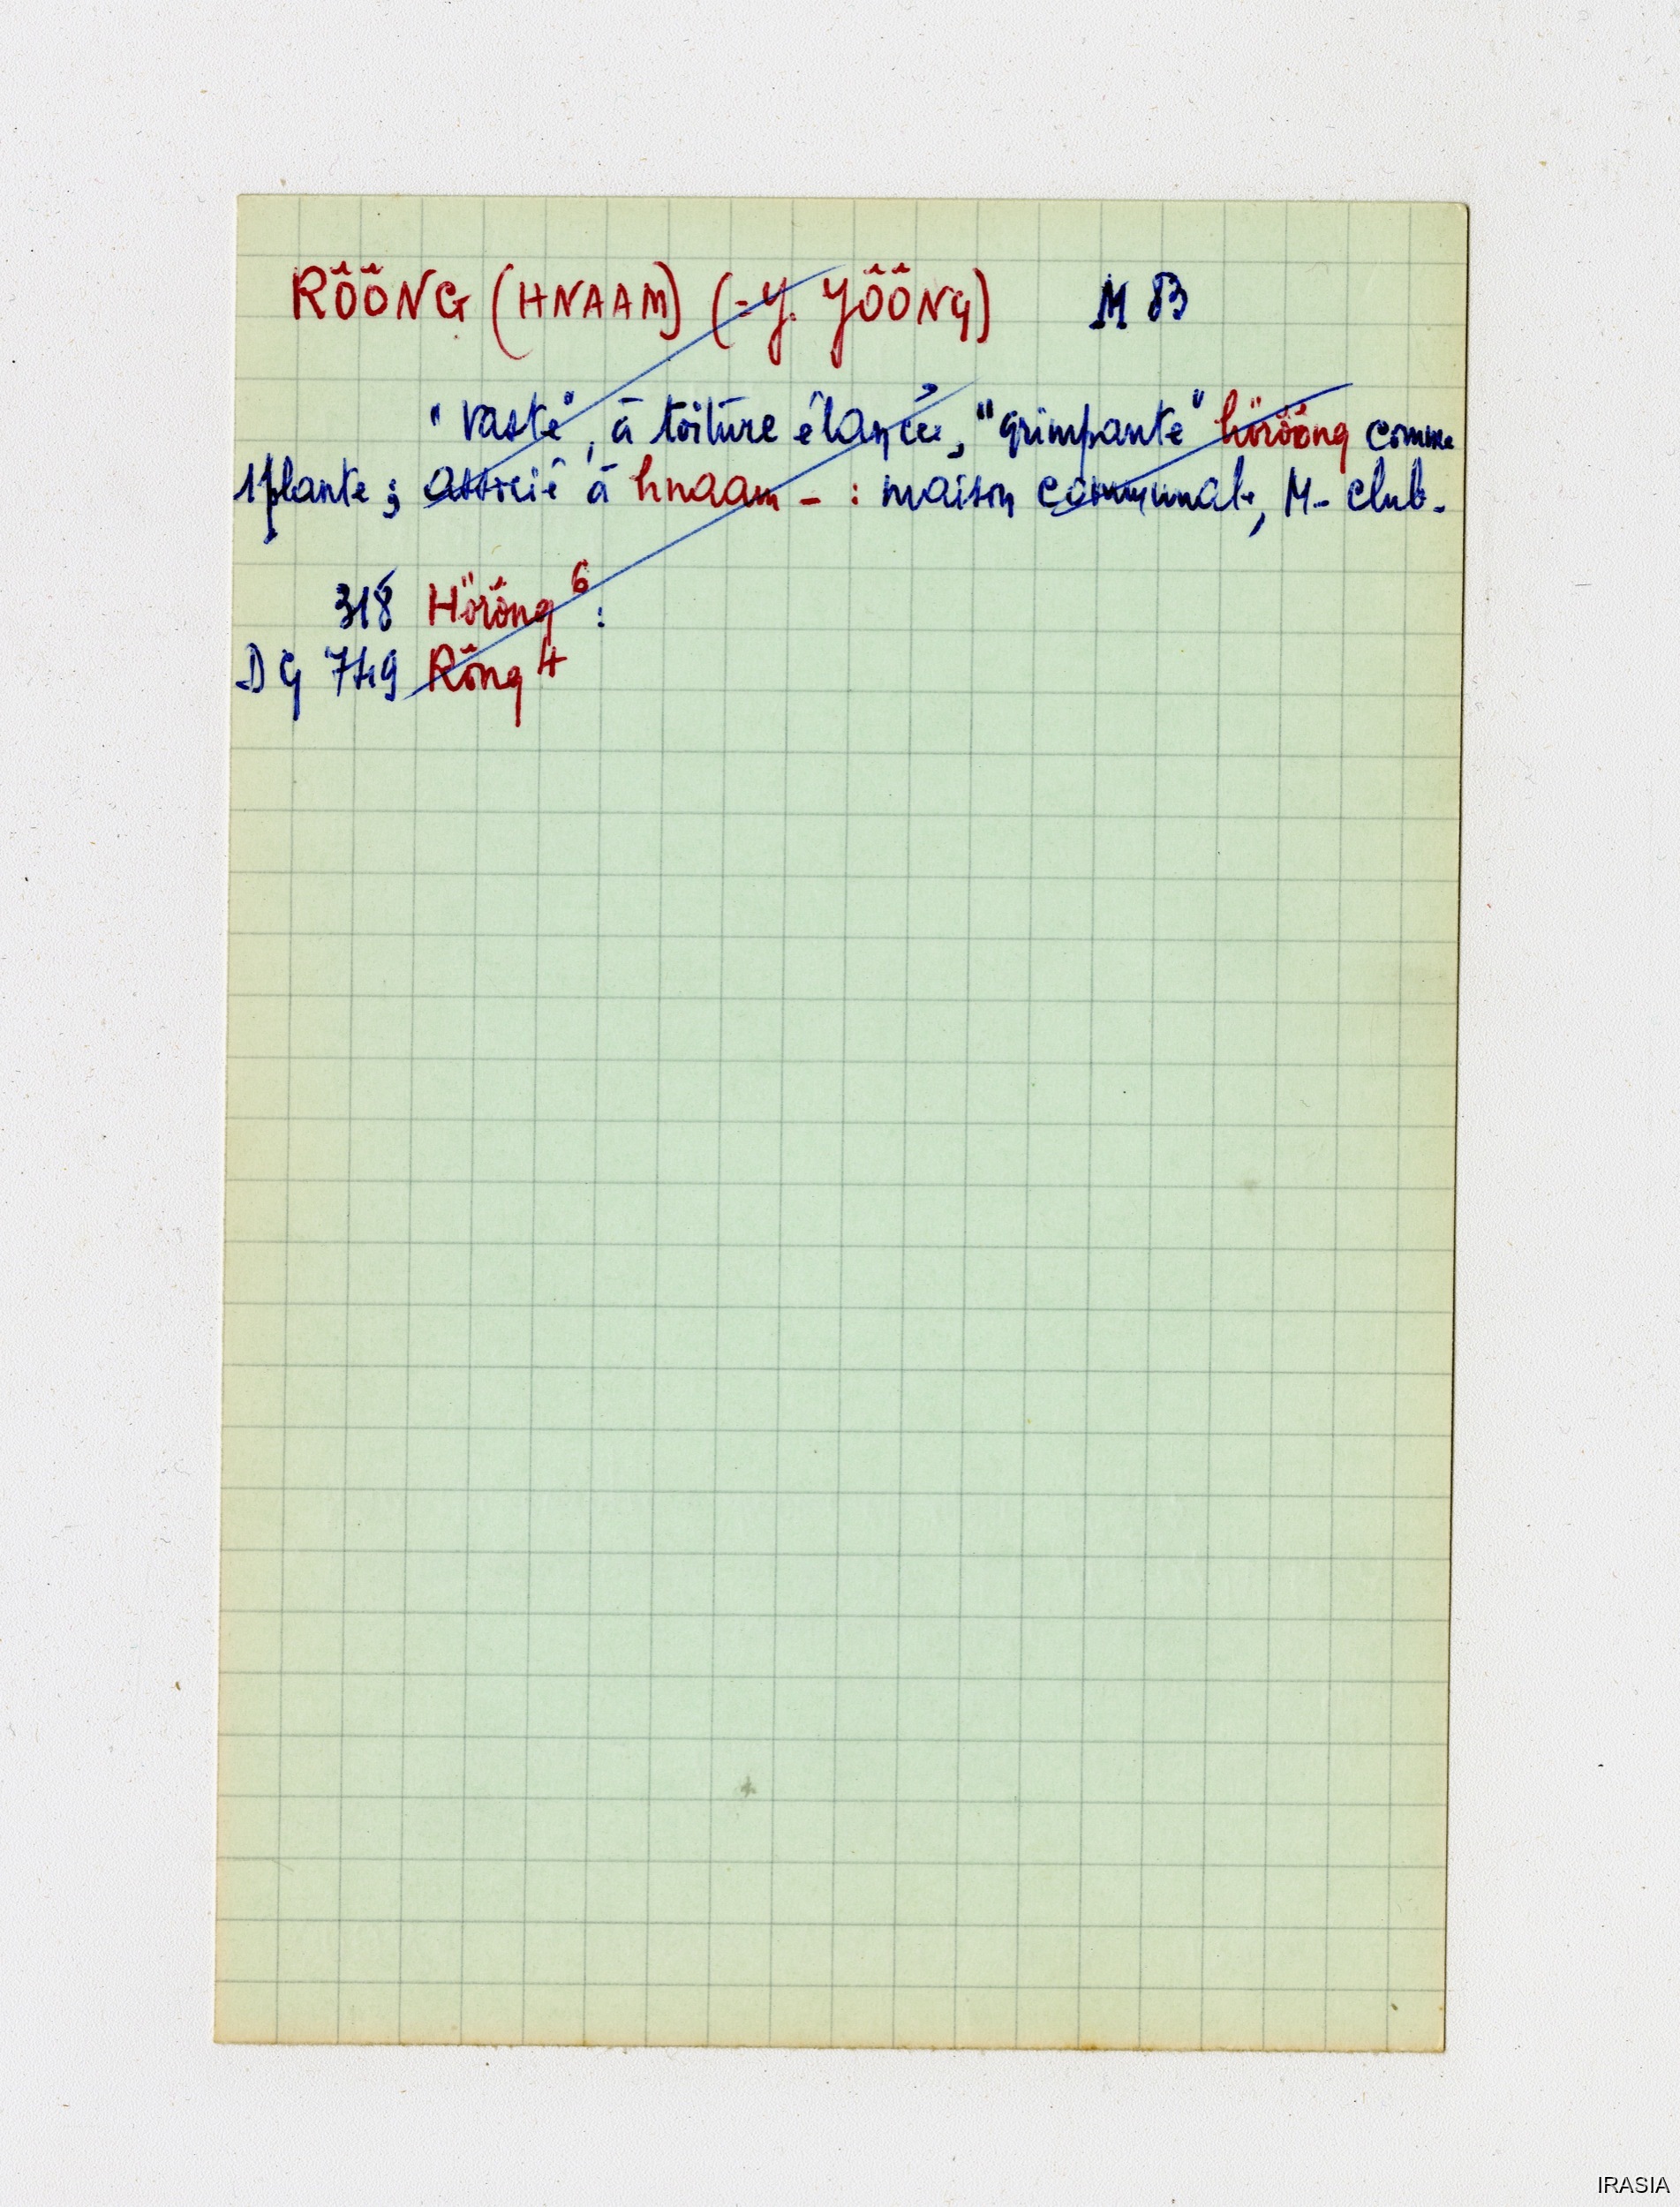 RÔÔNG (HNAAM) (=Y. YÔÔNG) M 83
"vaste", à toiture élancée, "grimpante" höröông comme
1 plante ; associé à hnaam - : maison communale, M- club.
318 Höröng 6 :
DG 749 Rông 4
IRASIA